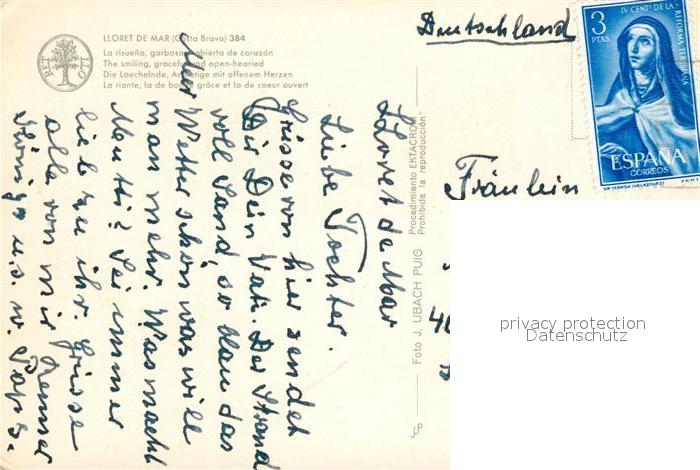 LLORET DE MAR (Costa Brava) 384
La risueña, garbosa, abierta de corazón
The smiling, graceful and open-hearted
Die Laechelnde, Anmutige mit offenem Herzen
La riante, la de bonne grâce et la de coeur ouvert
RET
LLO
Deutschland
3
PTAS
IV CENT. DE LA REFORMA TERESIANA
ESPAÑA
CORREOS
STA TERESA (VELAZQUEZ)
F.N.M.T
Fräulein
Procedimiento EKTACROM
Prohibida la reproducción
Foto J. UBACH PUIG
LLoret de Mar
Liebe Tochter.
Grüsse von hier sendet
Dir Dein Vati. Der Strand
voll Sand, so blau das Meer
Wetter schön was will
man mehr. Was macht
Mutti? Sei immer
lieb zu ihr. Grüsse
alle von mir
u.s.w. Papa.
40
privacy protection
Datenschutz